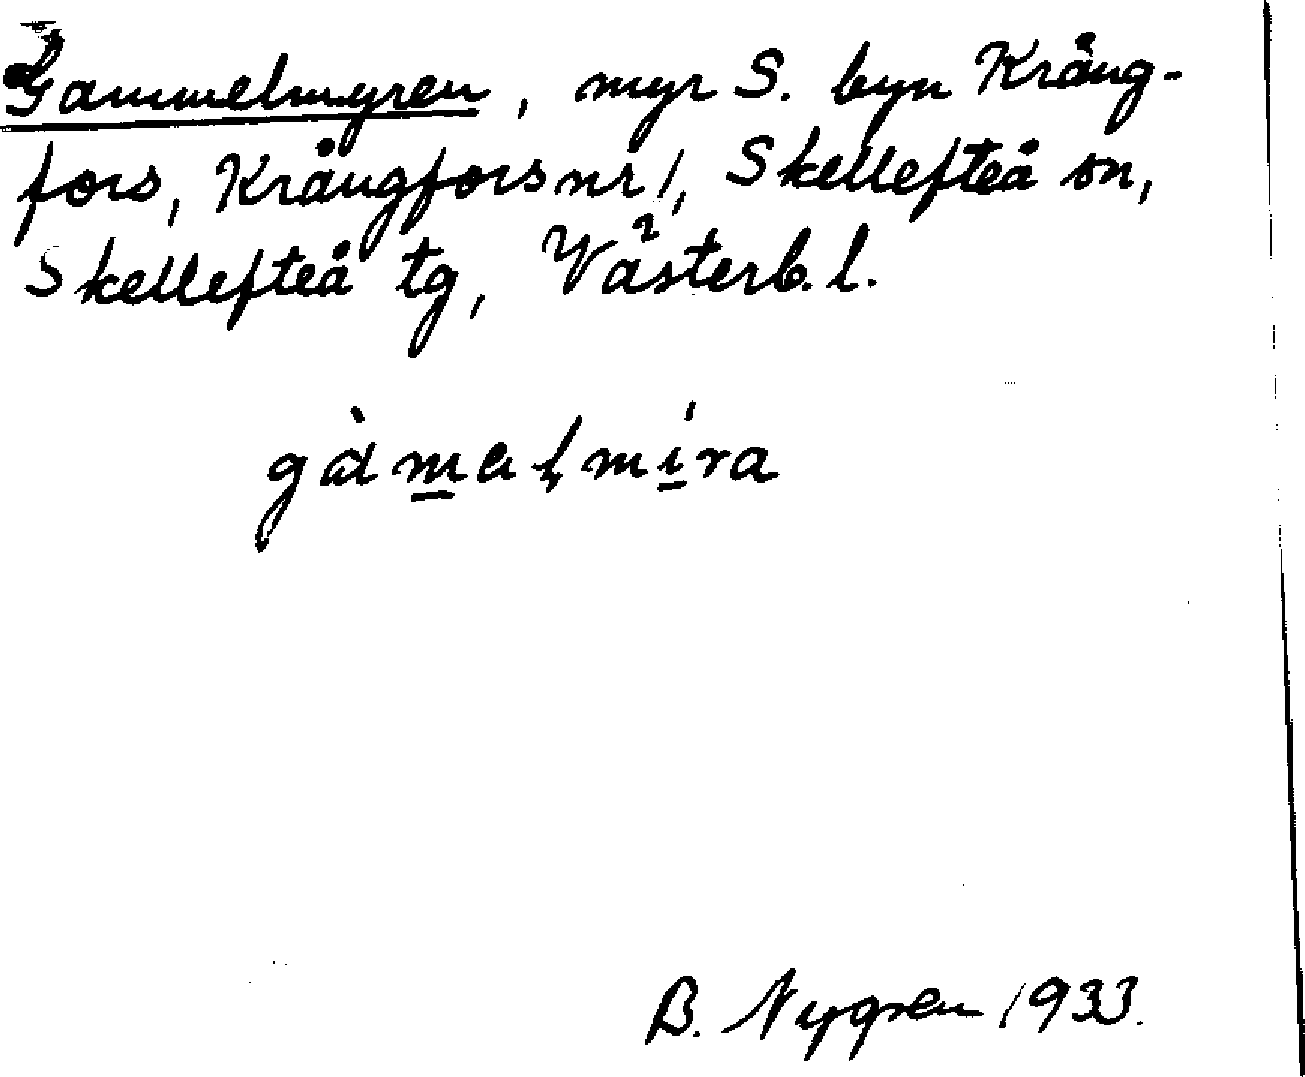 Gammelmyren, myr S. byn Kräng-
fors, Krångfors nr 1, Skellefteå sn,
Skellefteå tg, Västerb. l.
gàmalmíra
B. Nygren 1933.